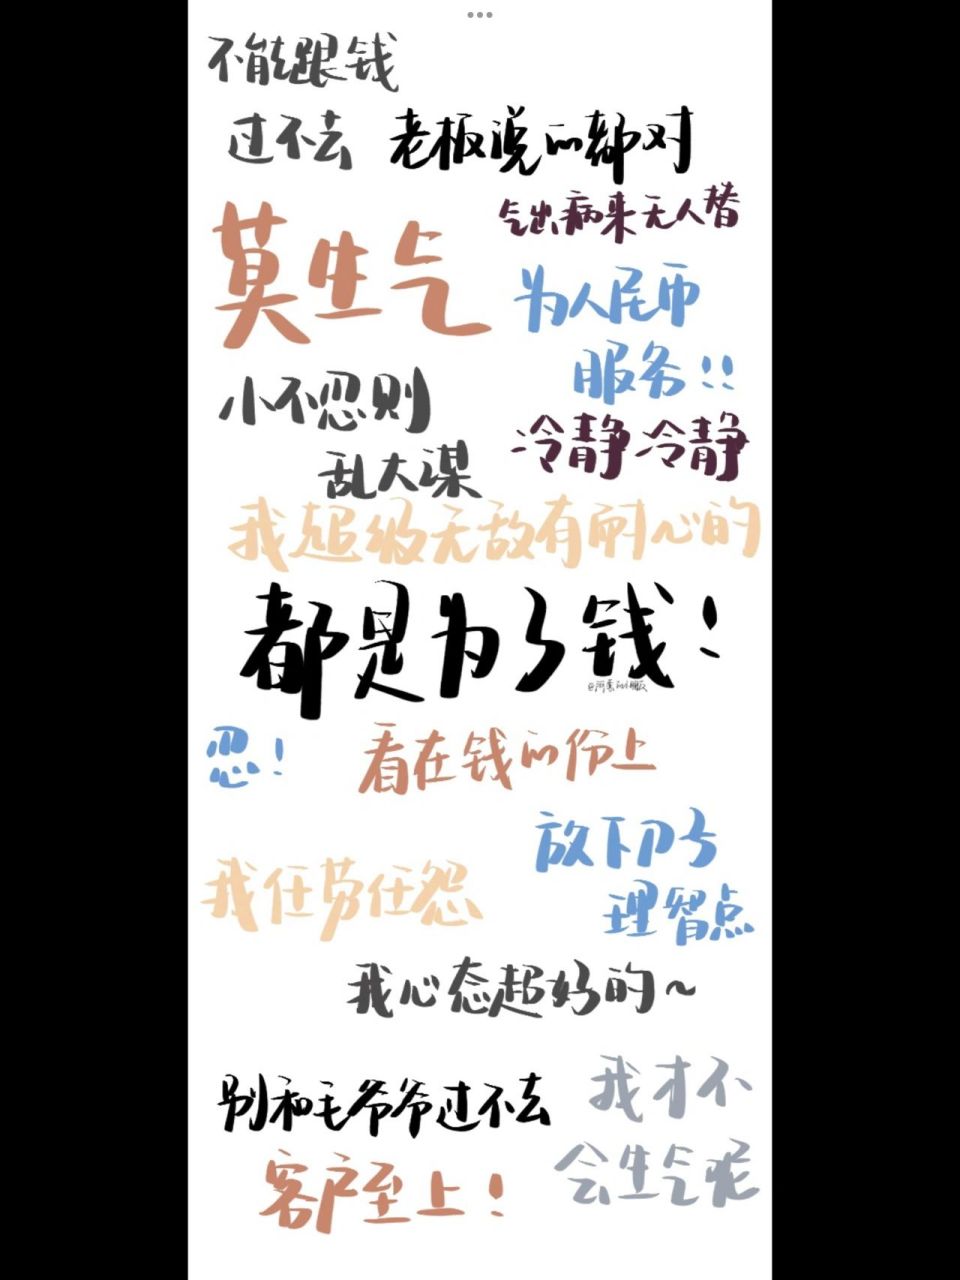 不能跟钱
过不去
老板说的都对
莫生气
气出病来无人替
为人民币
服务!!
小不忍则
乱大谋
冷静冷静
我超级无敌有耐心的
都是为了钱!
忍!
看在钱的份上
放下
理智点
我任劳任怨
我心态超好的~
别和毛爷爷过不去
我才不
会生气呢
客户至上!